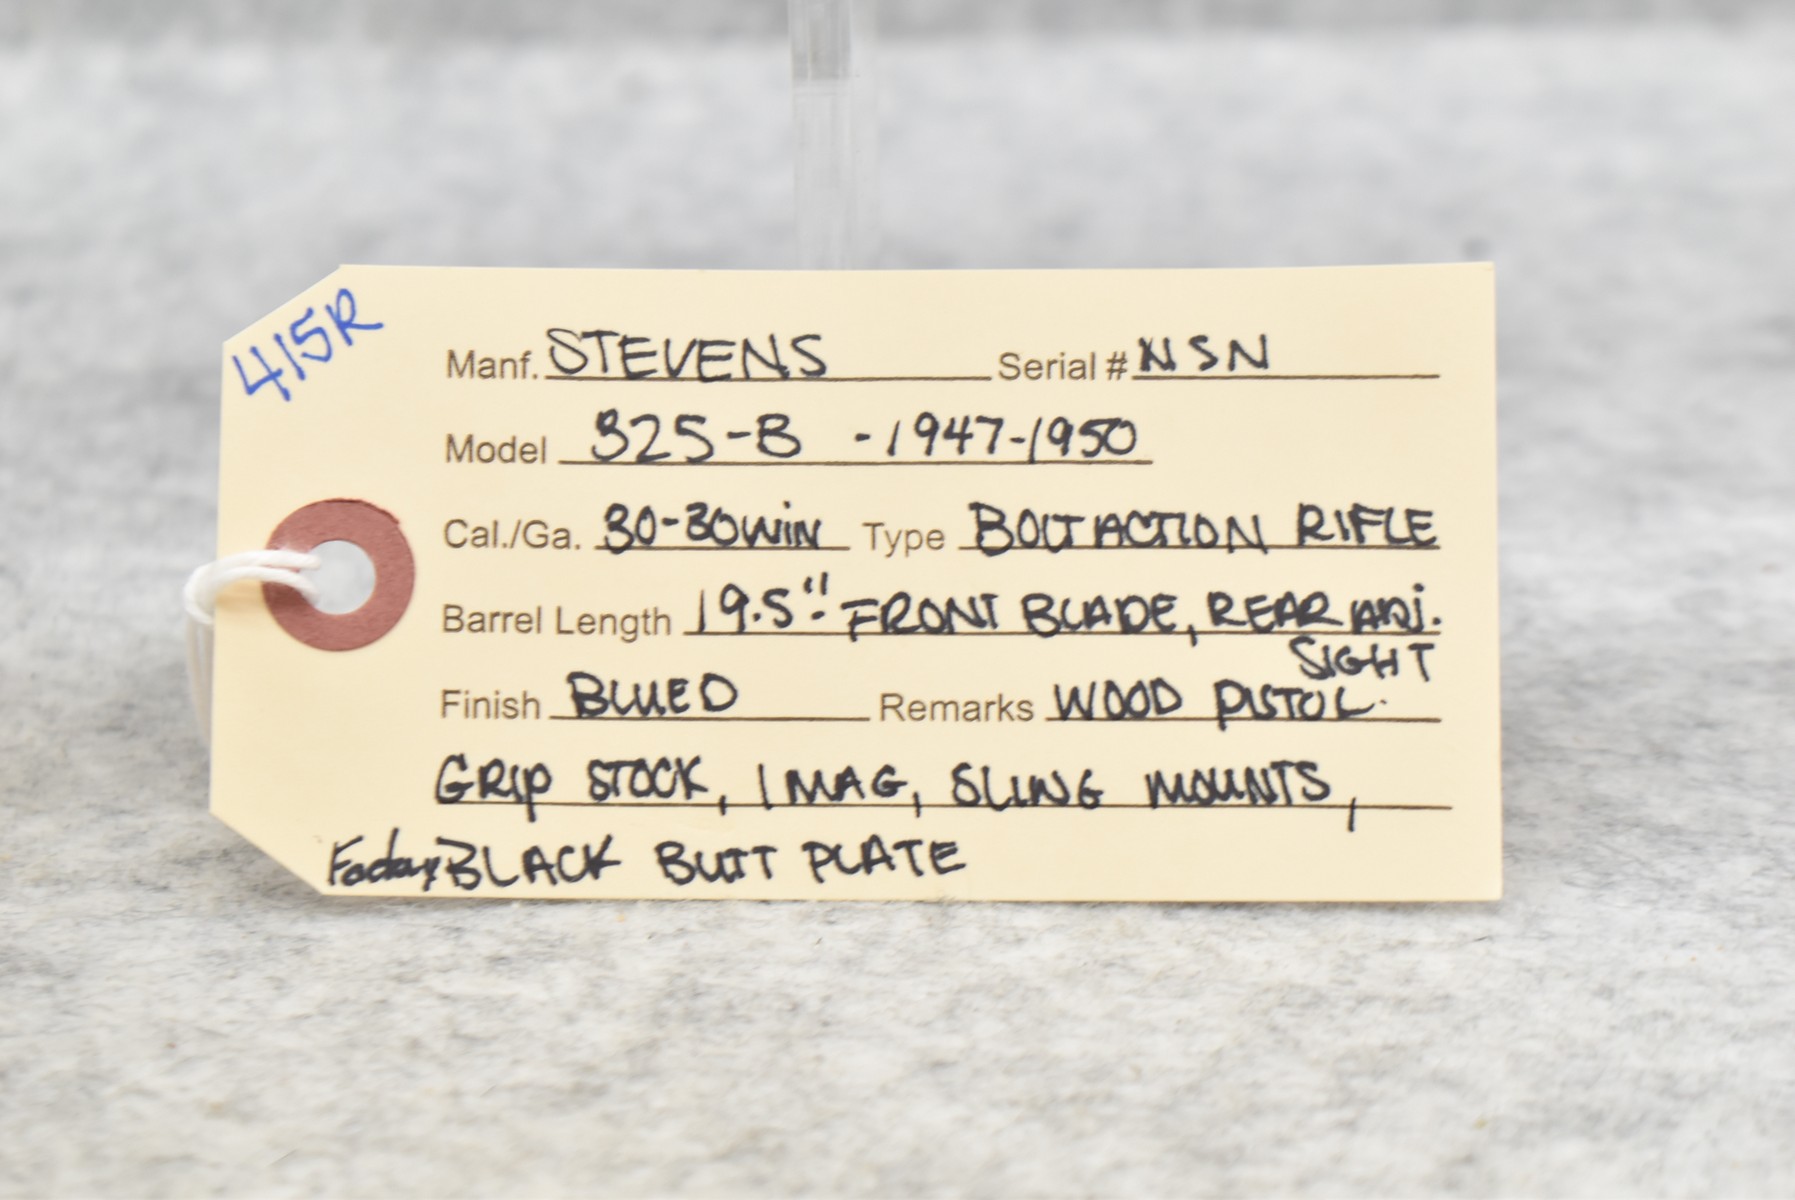 415R
Manf. STEVENS Serial # NSN
Model 325-B - 1947-1950
Cal./Ga. 30-30WiN Type BOLT ACTION RIFLE
Barrel Length 19.5" FRONT BLADE, REAR ADJ.
SIGHT
Finish BLUED Remarks WOOD PISTOL
GRIP STOCK, 1 MAG, SLING MOUNTS,
Factory BLACK BUTT PLATE